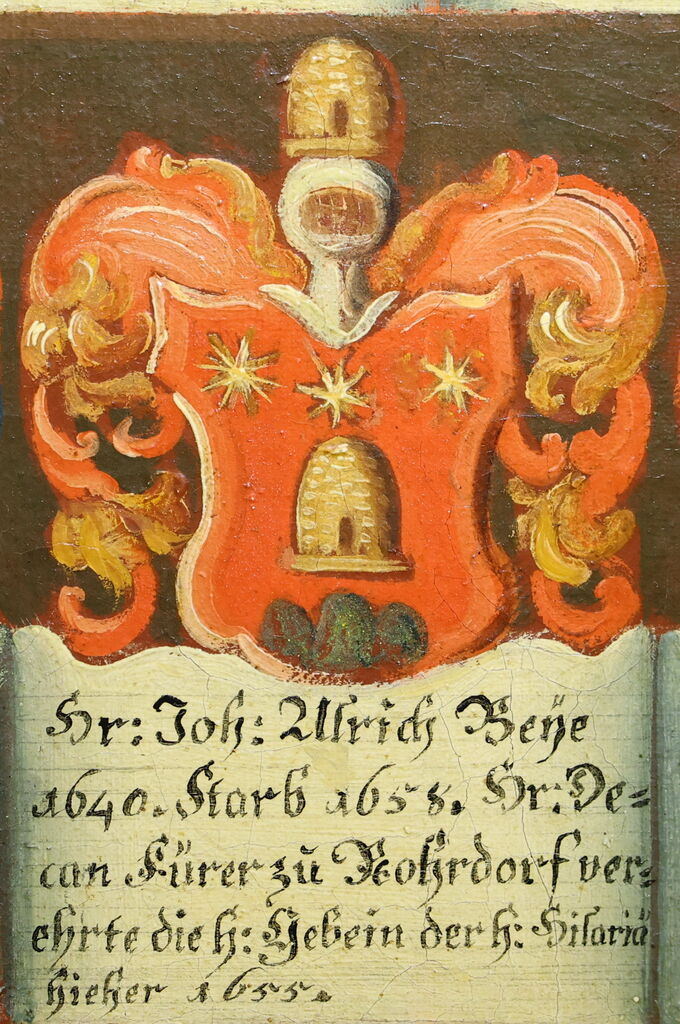 Hr: Joh: Ulrich Beÿe
1640. Starb 1658. Hr: De=
can Fürer zů Rohrdorf ver=
ehrte die h: Gebein der h: Hilariä
hieher 1655.